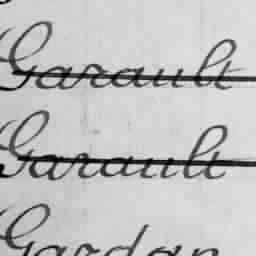 Garault
Garault
Gardan